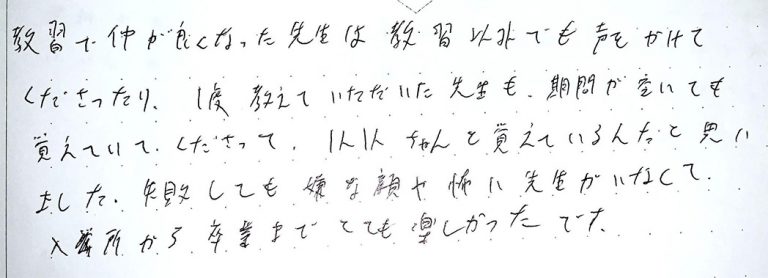 教習で仲が良くなった先生は教習以外でも声をかけて
くださったり、1度教えていただいた先生も、期間が空いても
覚えていて、くださって、1人1人ちゃんと覚えているんだと思い
ました。失敗しても嫌な顔や怖い先生がいなくて、
入所から卒業までとても楽しかったです。